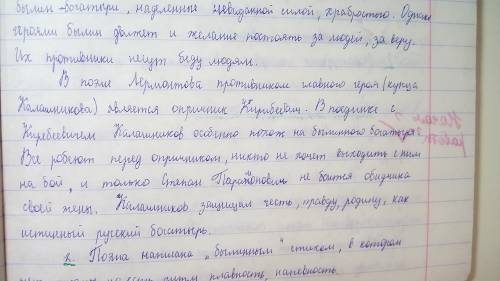 былин - богатыри, наделённые невиданной силой, храбростью. Одним
героями былин движет и желание постоять за людей, за веру.
Их противники несут беду людям.
В поэме Лермонтова противником главного героя (купца
Калашникова) является опричник Кирибеевич. В поединке с
Кирибеевичем Калашников особенно похож на былинного богатыря.
Все робеют перед опричником, никто не хочет выходить с ним
на бой, и только Степан Парамонович не боится обидчика
своей жены. Калашников защищал честь, правду, родину, как
истинный русский богатырь.
2. Поэма написана "былинным" стихом, в котором
ритм плавность, напевность.